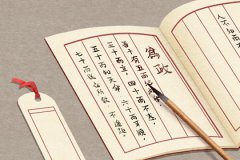 人不知而
為政
吾十有五而
三十而立，四十而不惑，
五十而知天命，六十而耳順，
七十而從心所欲，不逾